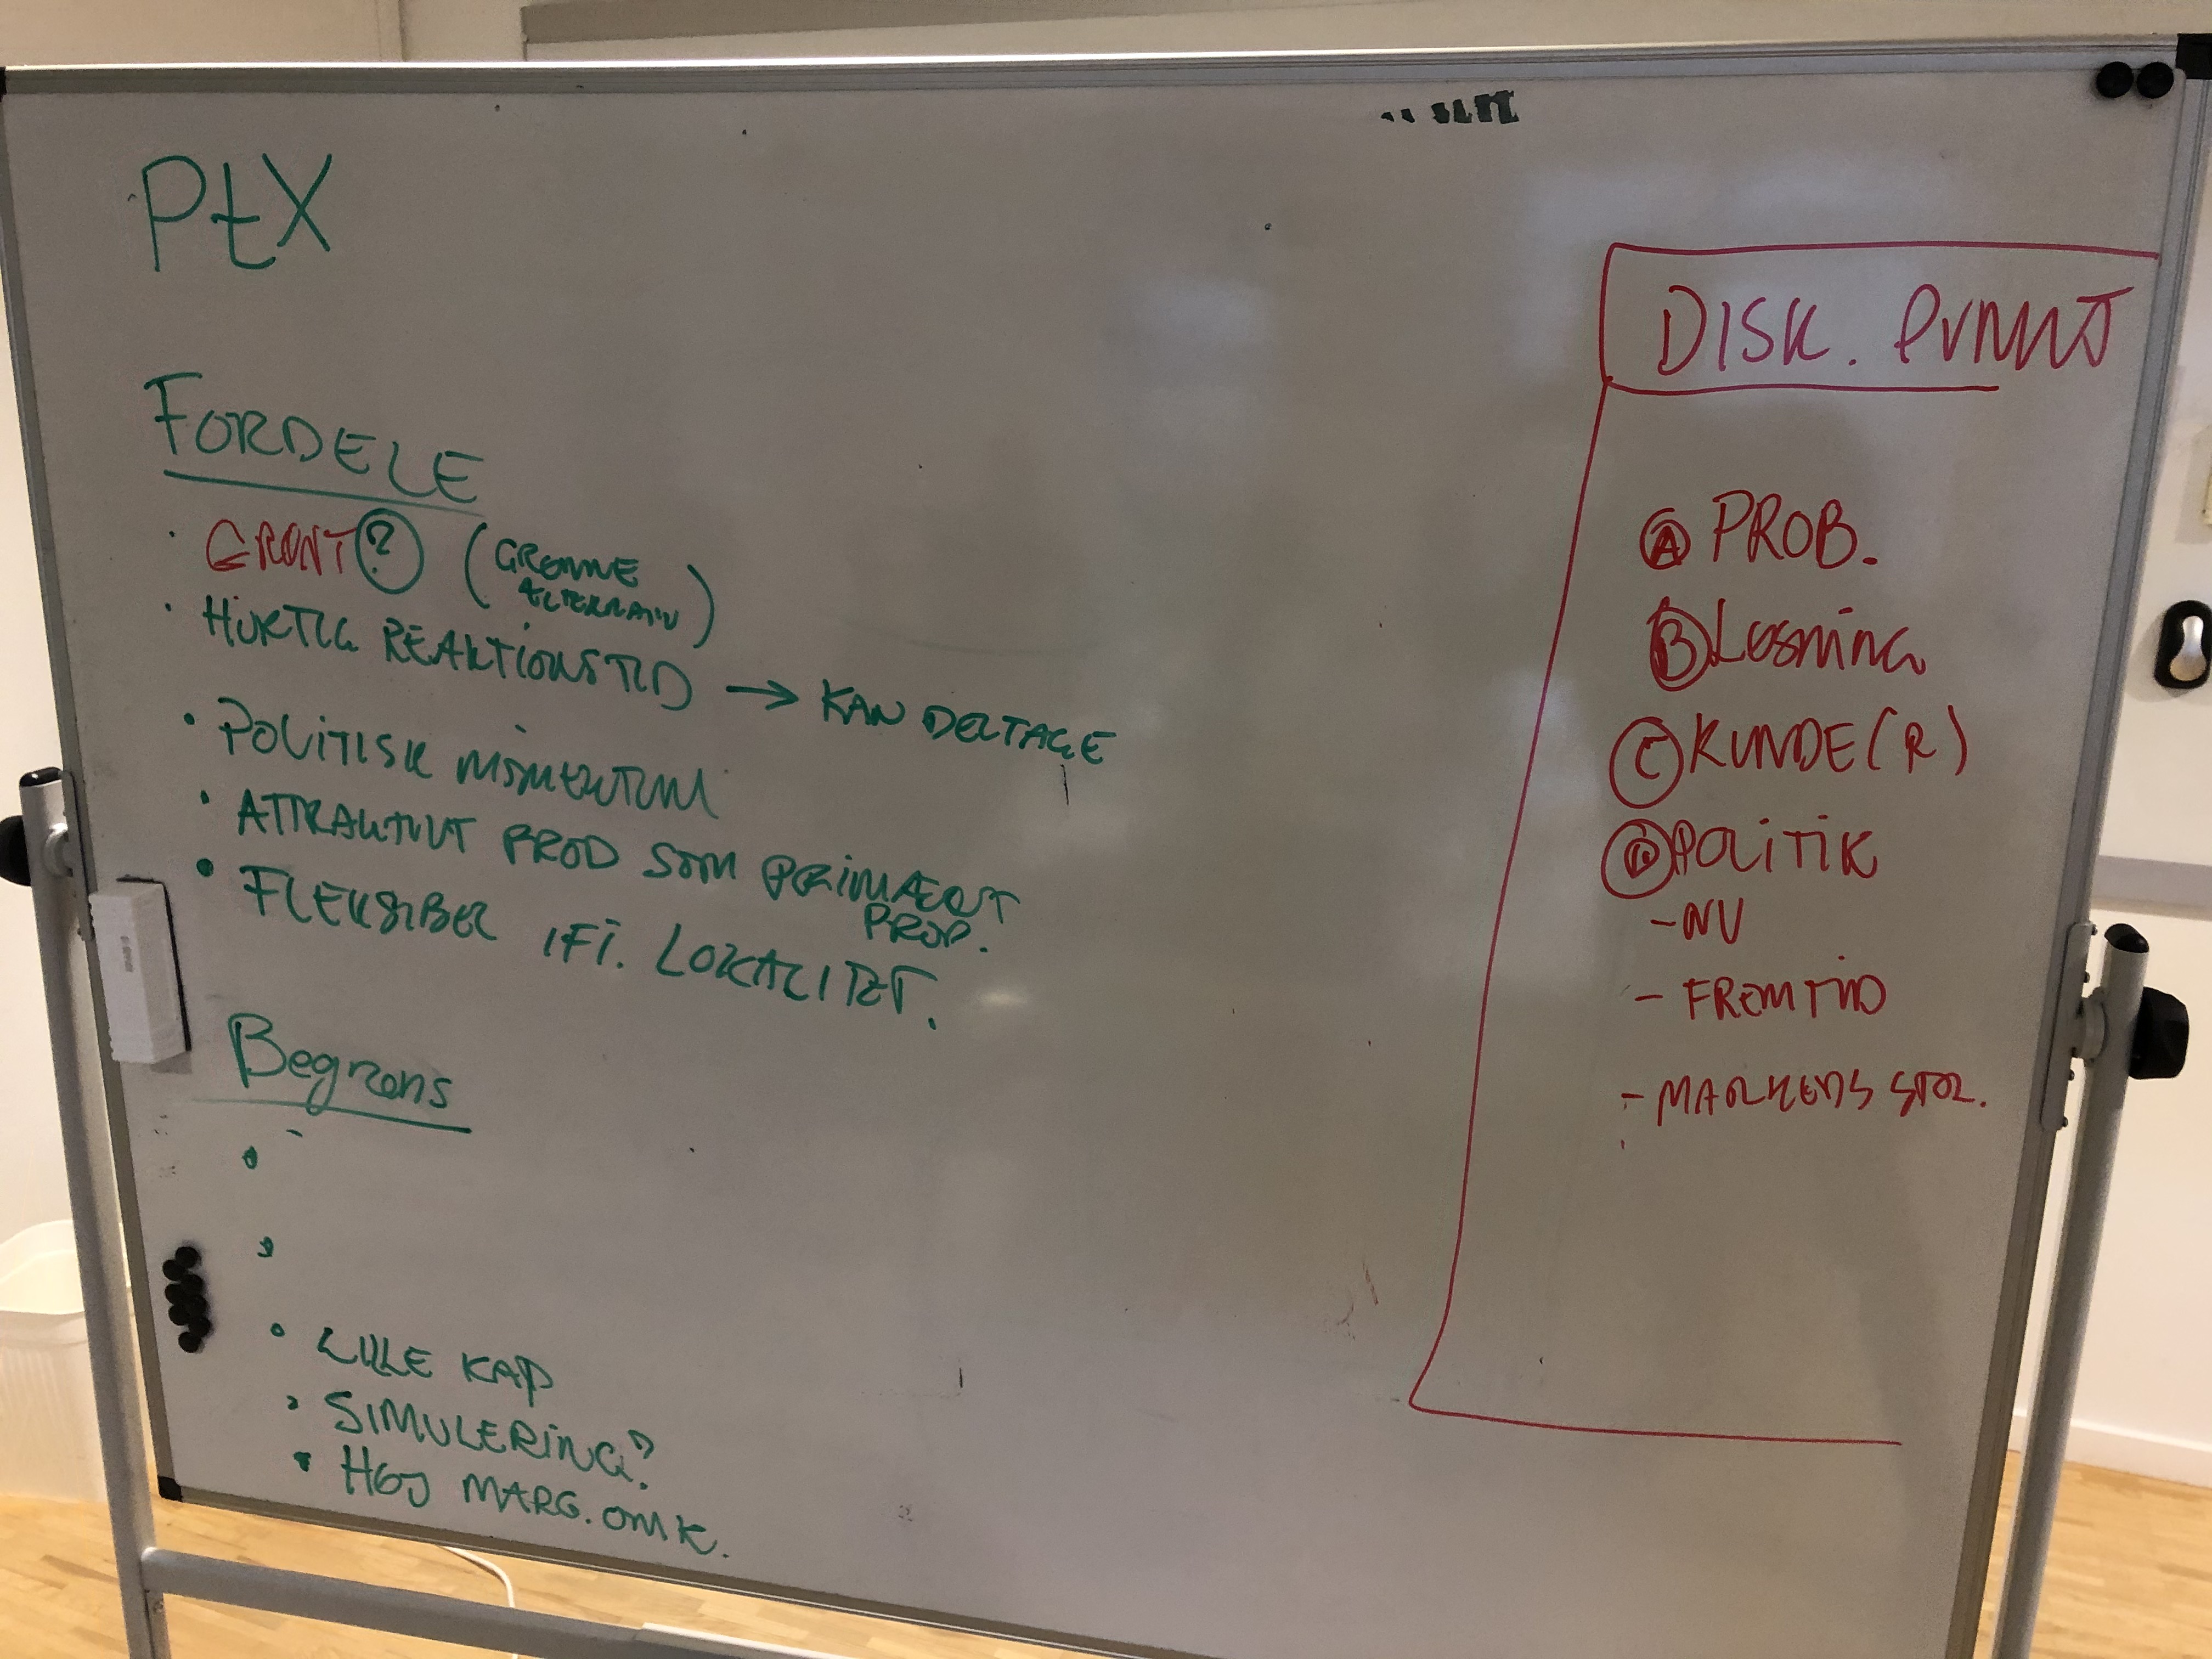 PtX
FORDELE
• GRØNT? (GRØNNE
ALTERNATIV)
• HURTIG REAKTIONSTID → KAN DELTAGE
• POLITISK MOMENTUM
• ATTRAKTIVT PROD SOM PRIMÆRT
PROD.
• FLEKSIBEL IFT. LOKALITET.
Begræns
•
•
• LILLE KAP
• SIMULERING?
• HØJ MARG. OMK.
DISK. PUNKT
A PROB.
B LØSNING
C KUNDE(R)
D POLITIK
- NU
- FREMTID
- MARKEDS STØR.